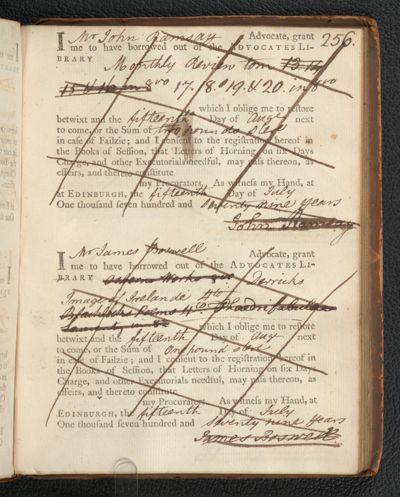 256.
I Mr John Ramsay Advocate, grant
me to have borrowed out of the ADVOCATES LI-
BRARY Monthly Review tom
15 & 16 in 8vo 17. 18. 19. & 20. in 8vo
which I oblige me to restore
betwixt and the fifteenth Day of Augt next
to come, or the Sum of Two pounds Ster
in case of Failzie; and I consent to the registration hereof in
the Books of Session, that Letters of Horning on six Days
Charge, and other Executorials needful, may pass thereon, as
effeirs, and thereto constitute
my Procurators. As witness my Hand, at
at EDINBURGH, the fifteenth Day of July
One thousand seven hundred and seventy nine years
John Ramsay
I Mr James Boswell Advocate, grant
me to have borrowed out of the ADVOCATES LI-
BRARY Works 8vo Derricks
Image of Irelande 4to
Poems 4to Phædri fabulae
8o which I oblige me to restore
betwixt and the fifteenth Day of Augt next
to come, or the Sum of One pound Ster
in case of Failzie; and I consent to the registration hereof in
the Books of Session, that Letters of Horning on six Days
Charge, and other Executorials needful, may pass thereon, as
effeirs, and thereto constitute
my Procurators. As witness my Hand, at
EDINBURGH, the fifteenth Day of July
One thousand seven hundred and seventy nine years
James Boswell